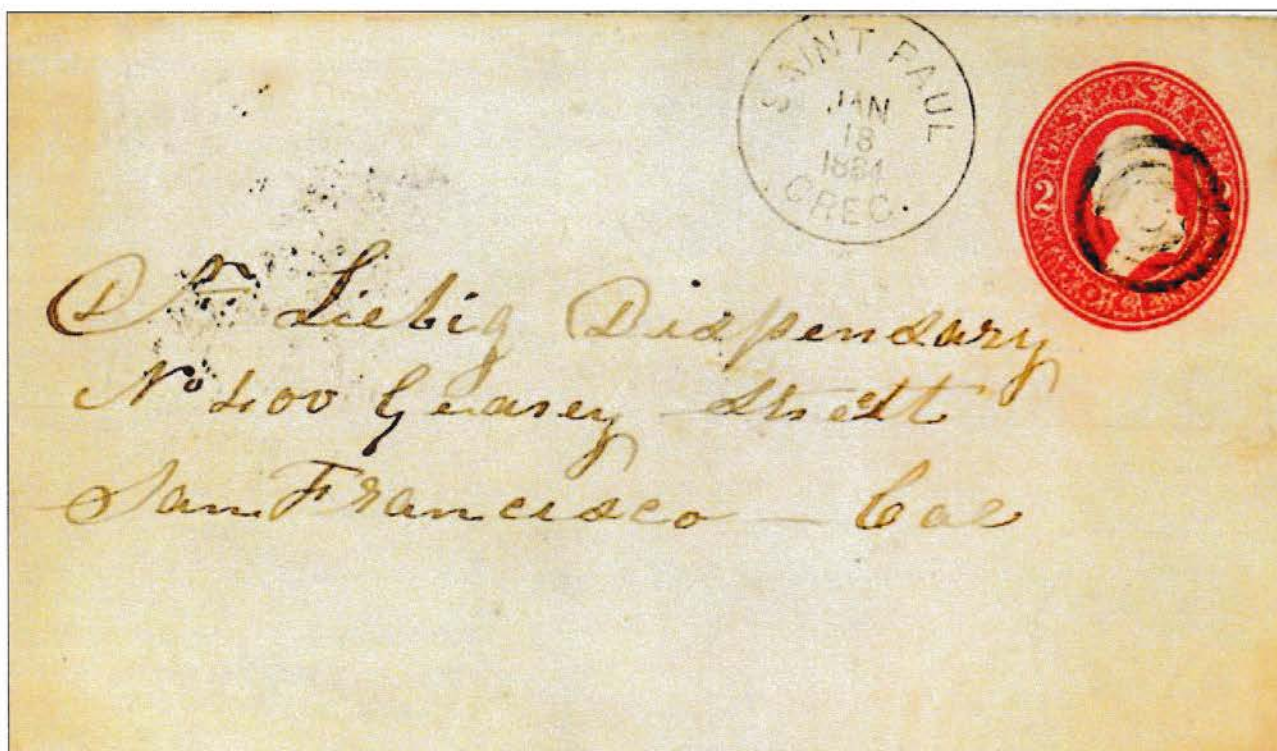 SAINT PAUL
JAN
18
1884
OREG.
U.S. POSTAGE
2 2
TWO CENTS
Dr Liebig Dispensary
No 400 Gearey Strett
San Francisco — Cal